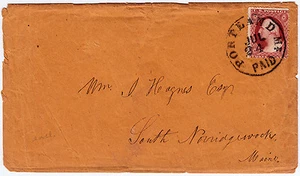 PORTLAND ME
JUL
PAID
Wm J Haynes Esqr
South Norridgewock
Maine